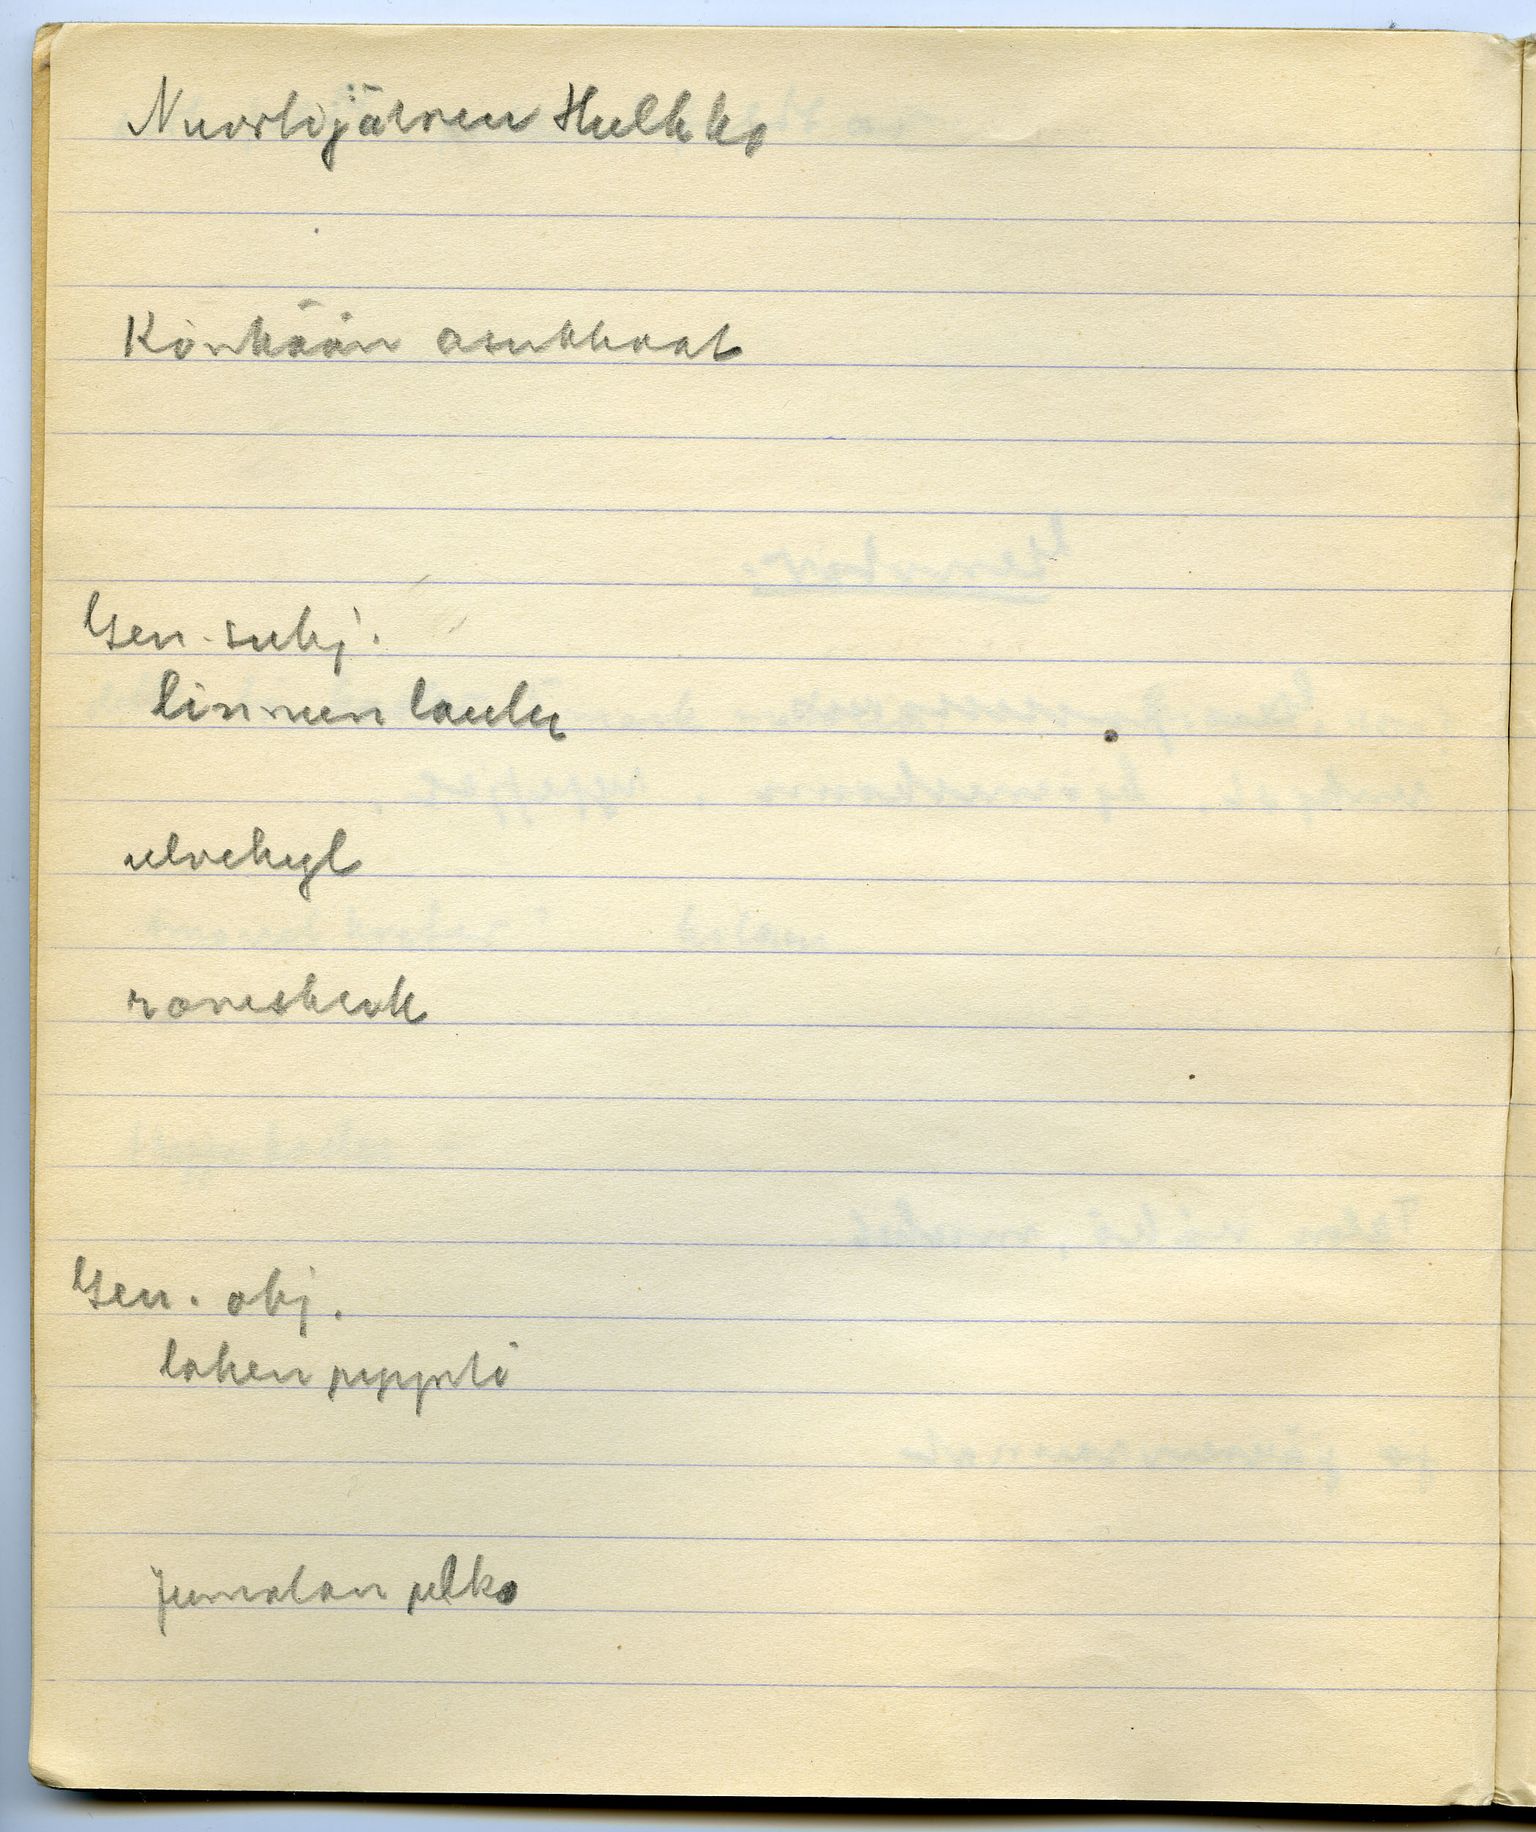 Nuortijärven Hulkko
Könkään asukkaat
Gen. subj.
linnun laulu
ulvehyl
raneskrik
Gen. obj.
lohen pyyntö
Jumalan pelko